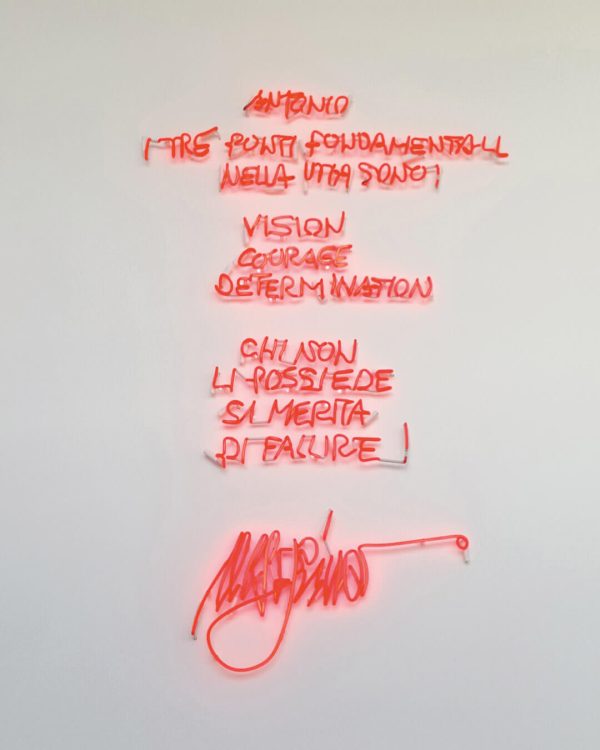 ANTONIO
I TRE PUNTI FONDAMENTALI
NELLA VITA SONO:
VISION
COURAGE
DETERMINATION
CHI NON
LI POSSIEDE
SI MERITA
DI FALLIRE